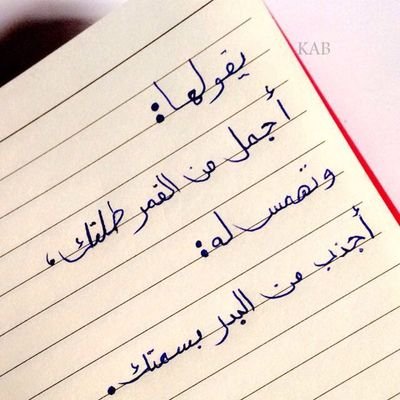 KAB
يقولها:
أجمل من القمر طلتك،
وتهمس له:
أجذب من البدر بسمتك.